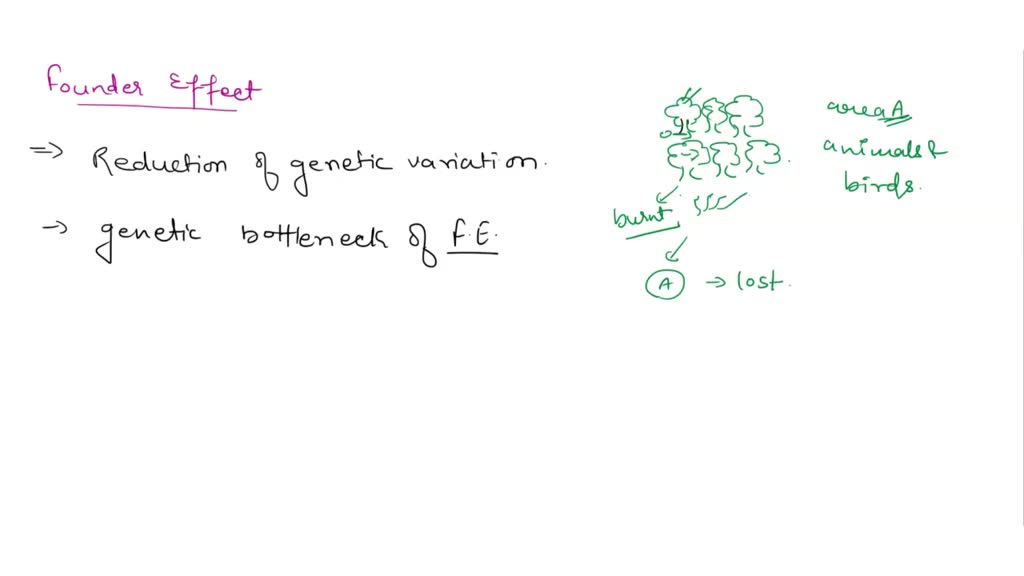 Founder Effect
⇒ Reduction of genetic variation.
→ genetic bottleneck of F.E.
area A
animals &
birds.
burnt
A → lost.